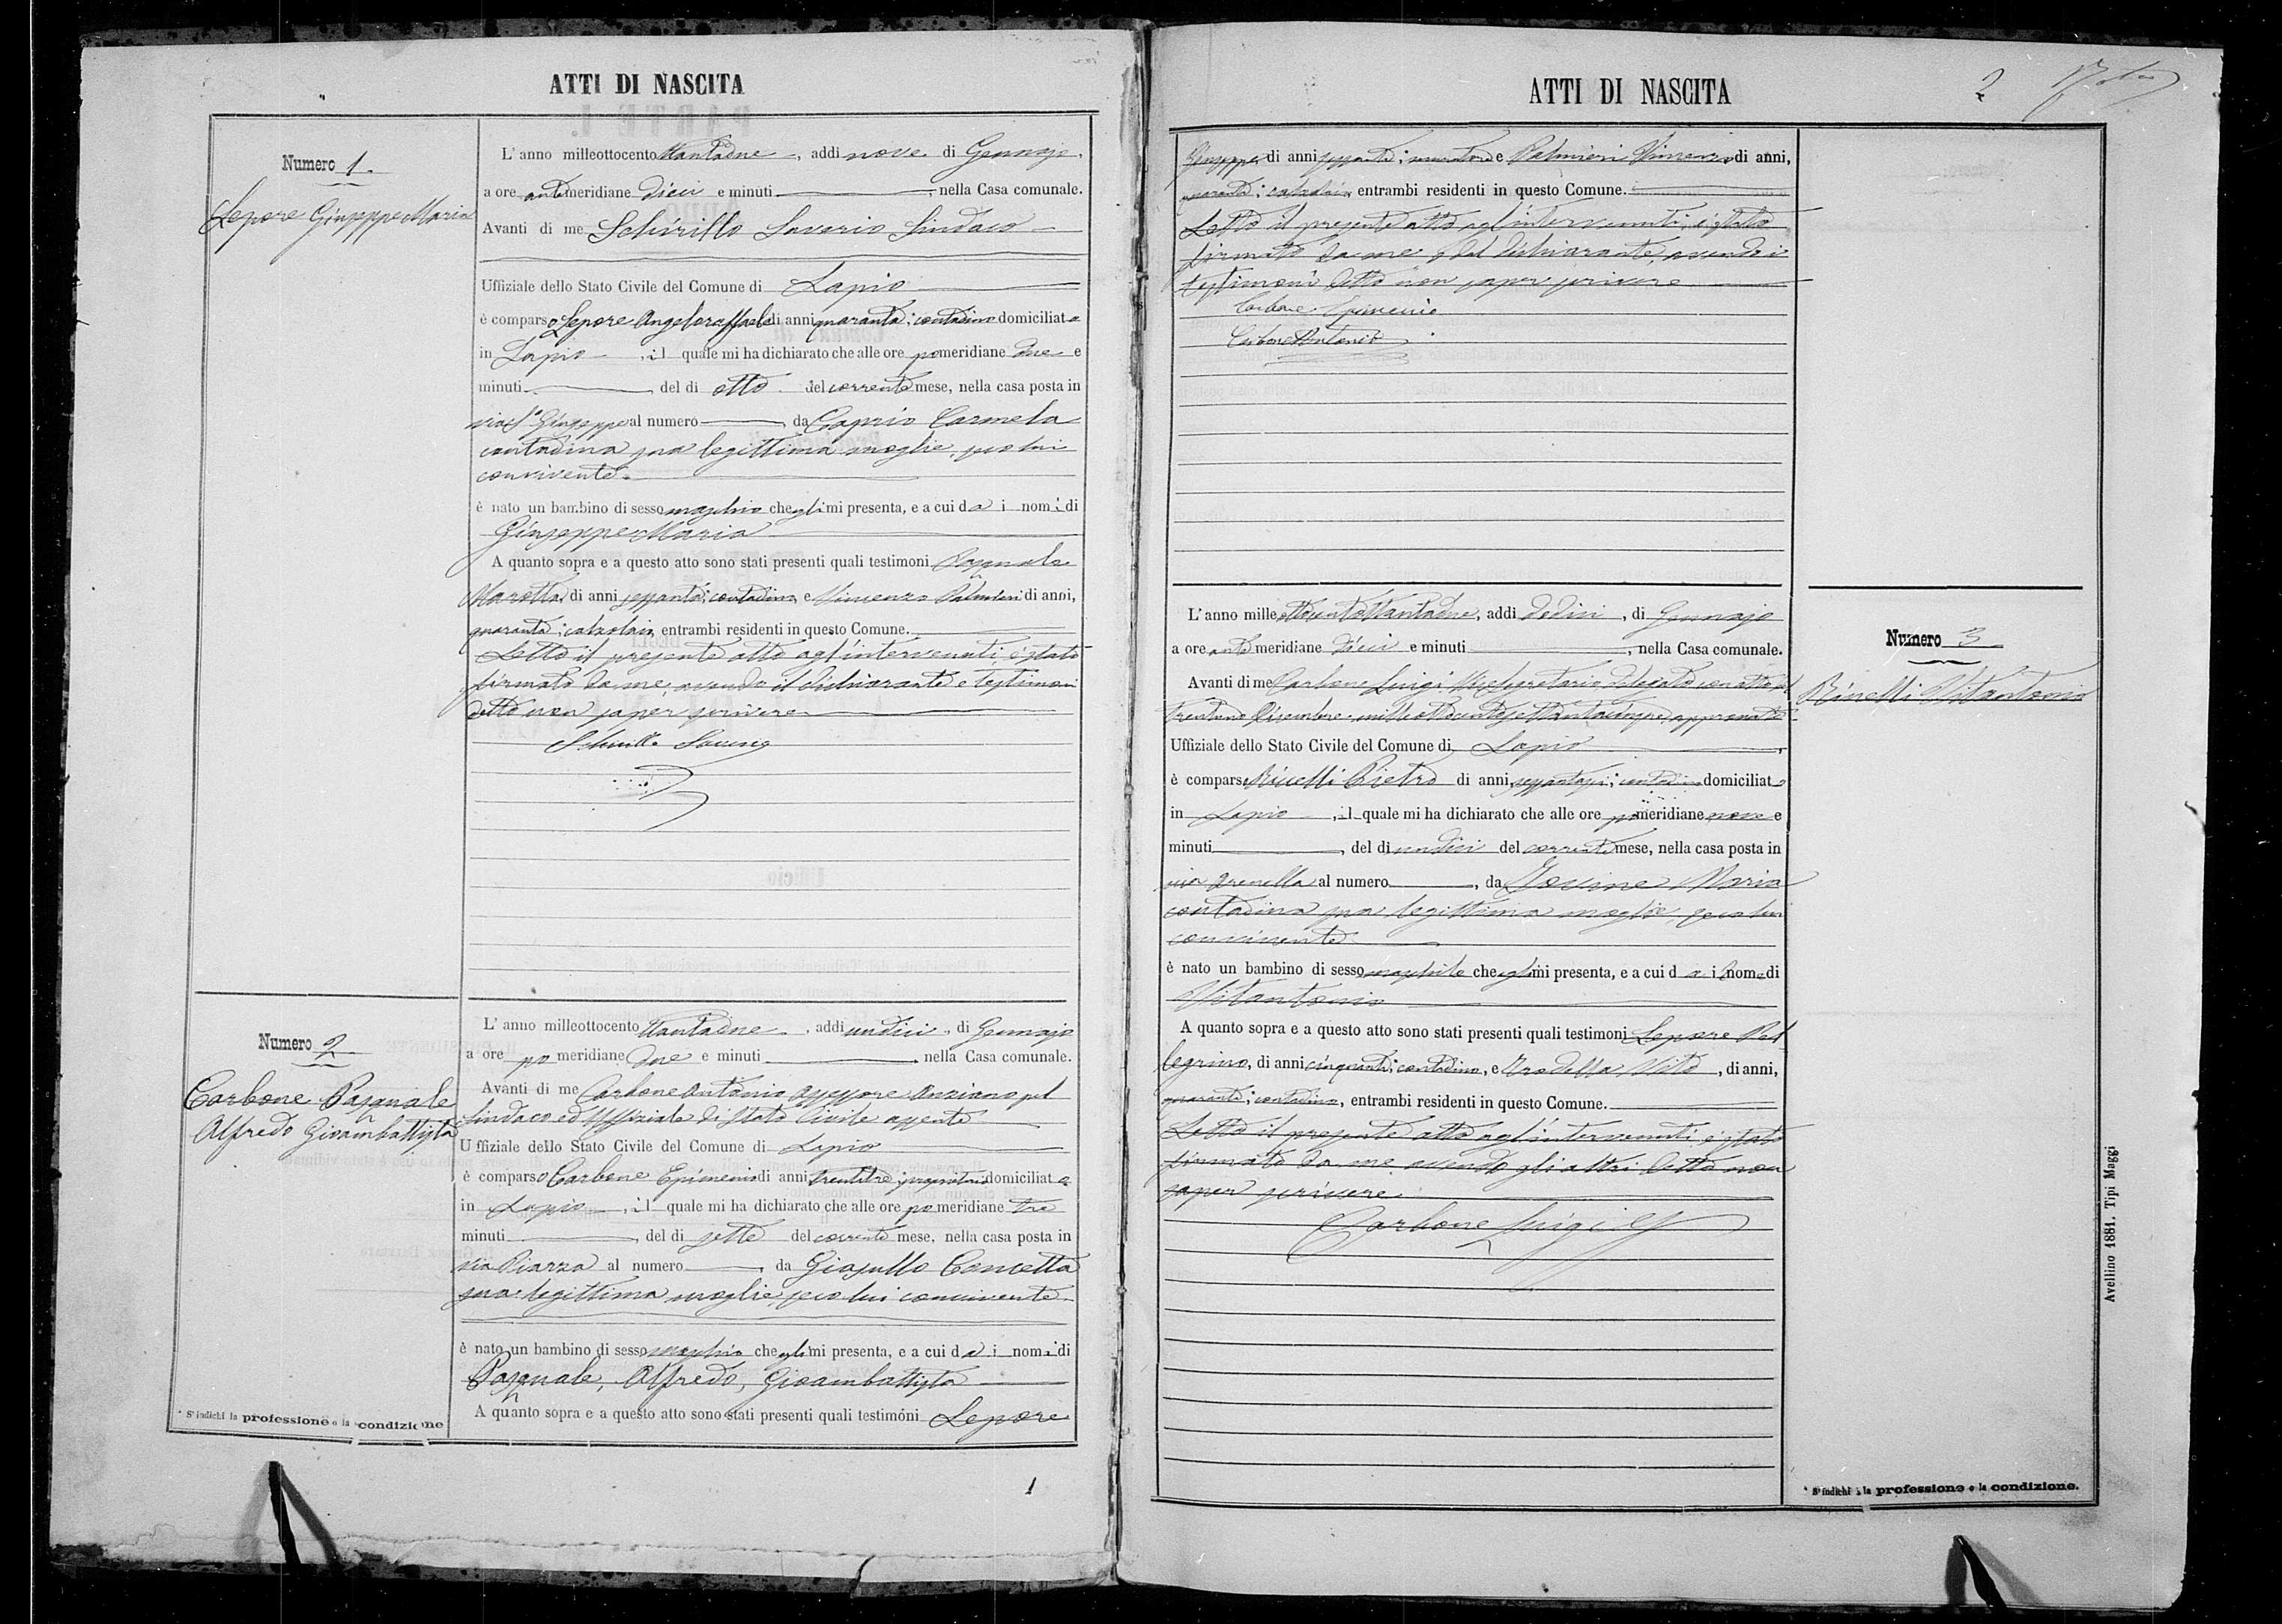 ATTI DI NASCITA
Numero 1.
Lepore Giuseppe Maria
L'anno milleottocento ottantadue, addi nove di Gennajo,
a ore antemeridiane dieci e minuti, nella Casa comunale.
Avanti di me Schirillo Saverio Sindaco
Uffiziale dello Stato Civile del Comune di Lapio
è comparso Lepore Angeloraffaele di anni quaranta; contadino domiciliato
in Lapio, il quale mi ha dichiarato che alle ore pomeridiane due e
minuti, del di otto del corrente mese, nella casa posta in
via S. Giuseppe al numero, da Caprio Carmela
contadina sua legittima moglie, seco lui
convivente
è nato un bambino di sesso maschio che egli mi presenta, e a cui da i nomi di
Giuseppe Maria
A quanto sopra e a questo atto sono stati presenti quali testimoni Pasquale
Marotta di anni sessanta; contadino e Vincenzo Palmieri di anni,
quaranta; calzolaio, entrambi residenti in questo Comune.
Letto il presente atto agl'intervenuti, è stato
firmato da me, avendo il dichiarante e testimoni
detto non saper scrivere
Schirillo Saverio
Numero 2
Carbone Pasquale
Alfredo Gioambattista
L'anno milleottocento ottantadue, addi undici, di Gennajo
a ore pomeridiane due e minuti nella Casa comunale.
Avanti di me Carbone Antonio Assessore Anziano pel
Sindaco ed Uffiziale di Stato Civile assente
Uffiziale dello Stato Civile del Comune di Lapio
è comparso Carbone Epimenio di anni trentatre; proprietario domiciliato
in Lapio, il quale mi ha dichiarato che alle ore pomeridiane tre
minuti, del di sette del corrente mese, nella casa posta in
via Piazza al numero, da Giasullo Concetta
sua legittima moglie, seco lui convivente
è nato un bambino di sesso maschio che egli mi presenta, e a cui da i nomi di
Pasquale, Alfredo, Gioambattista
A quanto sopra e a questo atto sono stati presenti quali testimoni Lepore
* S'indichi la professione o la condizione
1
ATTI DI NASCITA
2
Giuseppe di anni sessanta; muratore e Palmieri Vincenzo di anni,
quaranta; calzolaio, entrambi residenti in questo Comune.
Letto il presente atto agl'intervenuti, è stato
firmato da me e dal dichiarante, avendo i
testimoni detto non saper scrivere
Carbone Epimenio
Carbone Antonio
Numero 3
Rinelli Vitantonio
L'anno mille ottocentottantadue, addi dodici, di Gennajo
a ore antemeridiane dieci e minuti, nella Casa comunale.
Avanti di me Carbone Luigi Vicesegretario delegato con atto del
trentuno Dicembre milleottocentosettantacinque, approvato
Uffiziale dello Stato Civile del Comune di Lapio
è comparso Rinelli Pietro di anni sessantasei; contadino domiciliato
in Lapio, il quale mi ha dichiarato che alle ore pomeridiane nove e
minuti, del di undici del corrente mese, nella casa posta in
via Arenella al numero, da Jovine Maria
contadina sua legittima moglie, seco lui
convivente
è nato un bambino di sesso maschile che egli mi presenta, e a cui da il nome di
Vitantonio
A quanto sopra e a questo atto sono stati presenti quali testimoni Lepore Pel
legrino, di anni cinquanta; contadino, e Trodella Vito, di anni,
quaranta; contadino, entrambi residenti in questo Comune.
Letto il presente atto agl'intervenuti, è stato
firmato da me avendo gli altri detto non
saper scrivere
Carbone Luigi
Avellino 1881. Tipi Maggi
* S'indichi la professione o la condizione.